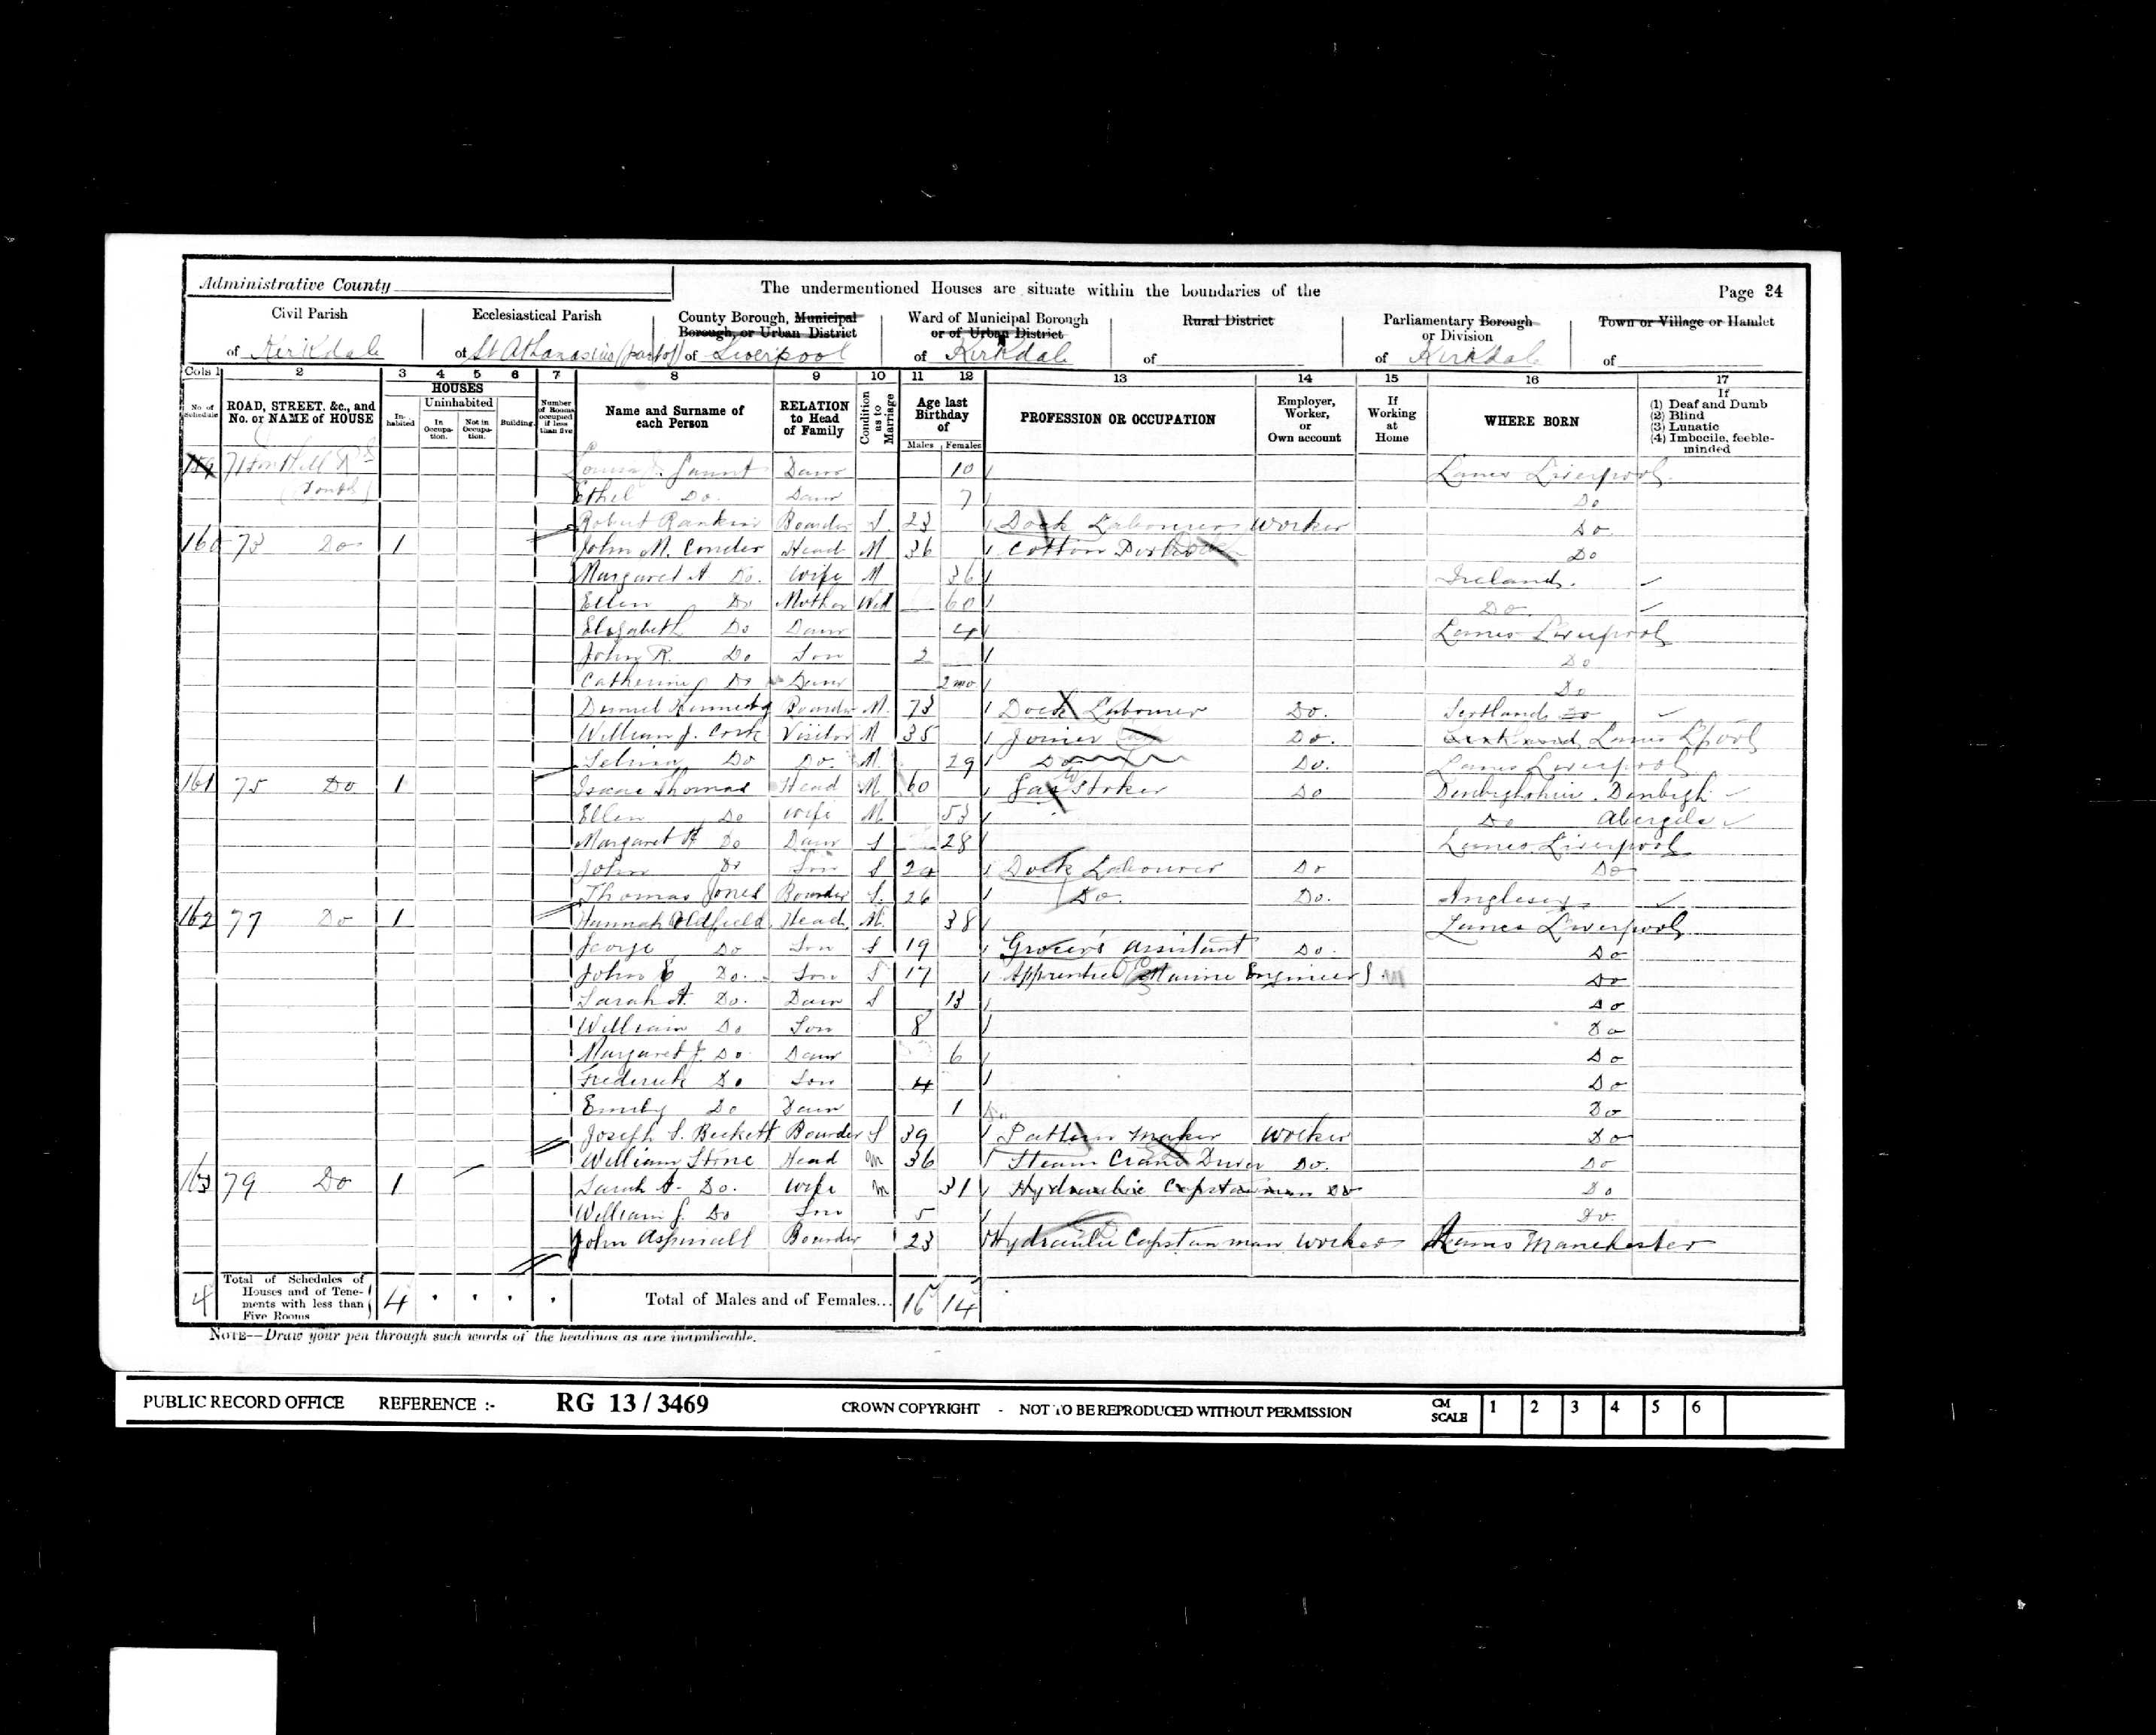 Administrative County
The undermentioned Houses are situate within the boundaries of the
Page 24
Civil Parish
of Kirkdale
Ecclesiastical Parish
of St Athanasius (part of)
County Borough, Municipal
Borough, or Urban District
of Liverpool
Ward of Municipal Borough
or of Urban District
of Kirkdale
Rural District
of
Parliamentary Borough
or Division
of Kirkdale
Town or Village or Hamlet
of
Cols 1 2 3 4 5 6 7 8 9 10 11 12 13 14 15 16 17
No. of Schedule
ROAD, STREET, &c., and
No. or NAME of HOUSE
HOUSES
In-habited
Uninhabited
In Occupa-tion.
Not in Occupa-tion.
Building
Number of Rooms occupied if less than five
Name and Surname of
each Person
RELATION
to Head
of Family
Condition as to Marriage
Age last
Birthday
of
Males Females
PROFESSION OR OCCUPATION
Employer,
Worker,
or
Own account
If
Working
at
Home
WHERE BORN
If
(1) Deaf and Dumb
(2) Blind
(3) Lunatic
(4) Imbecile, feeble-
minded
159 71 Daur 10 Lancs Liverpool
Ethel Do Daur 7 Do
Robert Rankin Boarder S 23 Dock Labourer Worker Do
160 73 Do 1 John M. Conder Head M 36 Cotton Do
Margaret A Do. Wife M 36 Ireland.
Ellen Do Mother Wid 60 Do
Elizabeth Do Daur 4 Lancs Liverpool
John R. Do Son 2 Do
Catherine Do Daur 2 mo Do
Daniel Kennedy Boarder M. 73 Dock Labourer Do. Scotland Do
William J. Cork Visitor M 35 Joiner Do. Lancs Lpool
Selina Do Do. M. 29 Do Do. Lancs Liverpool
161 75 Do 1 Isaac Thomas Head M 60 Gas Stoker Do Denbighshire. Denbigh
Ellen Do Wife M. 53 Do Abergele
Margaret A Do Daur S 28 Lancs. Liverpool
John Do Son S 20 Dock Labourer Do Do
Thomas Jones Boarder S. 26 Do. Do. Anglesey
162 77 Do 1 Hannah Oldfield Head M. 38 Lancs Liverpool
George Do Son S 19 Grocer's Assistant Do. Do
John E Do. Son S 17 Apprentice (Marine Engineer) Do
Sarah A. Do. Daur S 13 Do
William Do Son 8 Do
Margaret J. Do Daur 6 Do
Frederick Do Son 4 Do
Emily Do Daur 1 Do
Joseph S. Beckett Boarder S 39 Pattern Maker Worker Do
William Stone Head M 36 Steam Crane Driver Do. Do
163 79 Do 1 Sarah A. Do. Wife M 31 Hydraulic Capstanman Do Do
William J. Do Son 5 Do.
John Aspinall Boarder 23 Hydraulic Capstan man Worker Lancs Manchester
4 Total of Schedules of
Houses and of Tene-
ments with less than
Five Rooms 4
Total of Males and of Females... 16 14
NOTE—Draw your pen through such words of the headings as are inapplicable.
PUBLIC RECORD OFFICE REFERENCE :- RG 13 / 3469 CROWN COPYRIGHT - NOT TO BE REPRODUCED WITHOUT PERMISSION CM SCALE 1 2 3 4 5 6